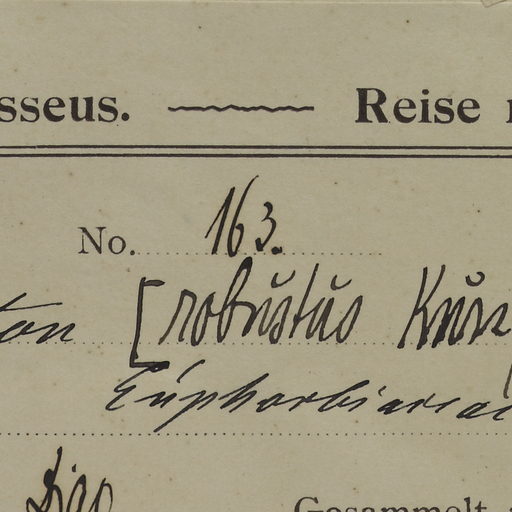 sseus. Reise
No. 163.
ton [robustus Kurz
Euphorbiacea
Gesammelt